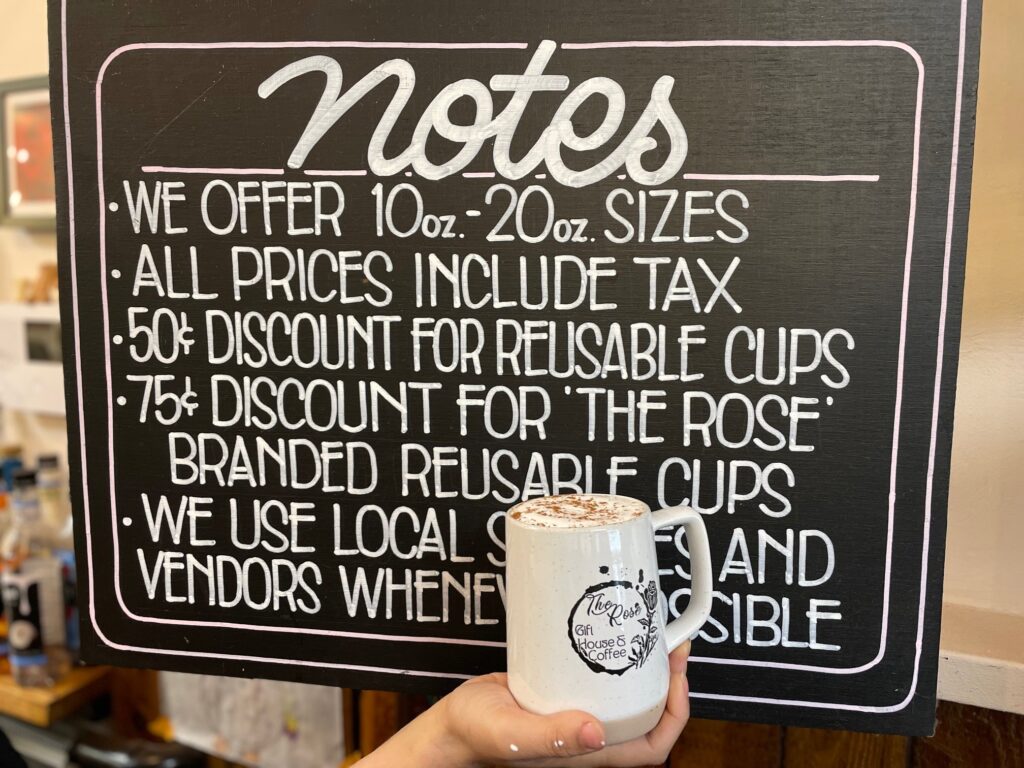 Notes
• WE OFFER 10oz.-20oz. SIZES
• ALL PRICES INCLUDE TAX
• 50¢ DISCOUNT FOR REUSABLE CUPS
• 75¢ DISCOUNT FOR 'THE ROSE'
BRANDED REUSABLE CUPS
• WE USE LOCAL AND
VENDORS
The Rose
Gift
House &
Coffee